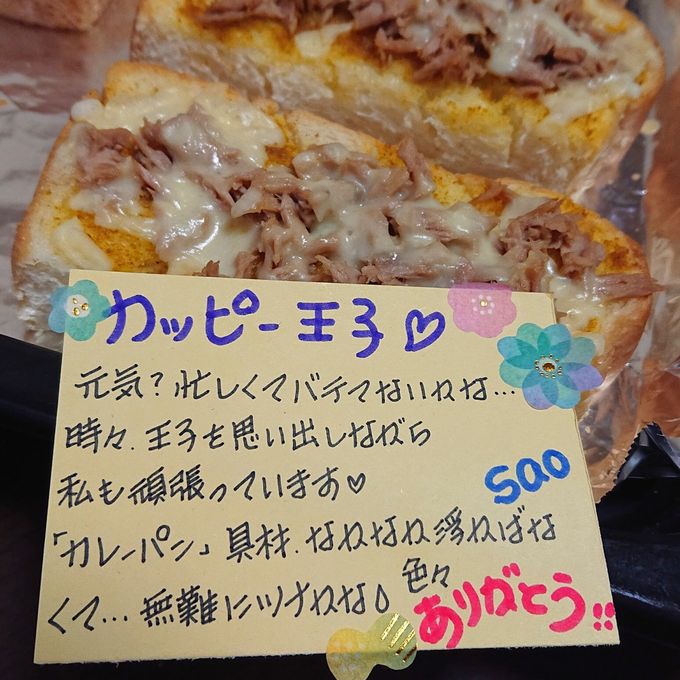 カッピー王子♡
元気?忙しくてバテてないかな…
時々、王子を思い出しながら
私も頑張っています♡
sao
「カレーパン」具材、なかなか浮かばな
くて…無難にツナかな♪
色々
ありがとう!!